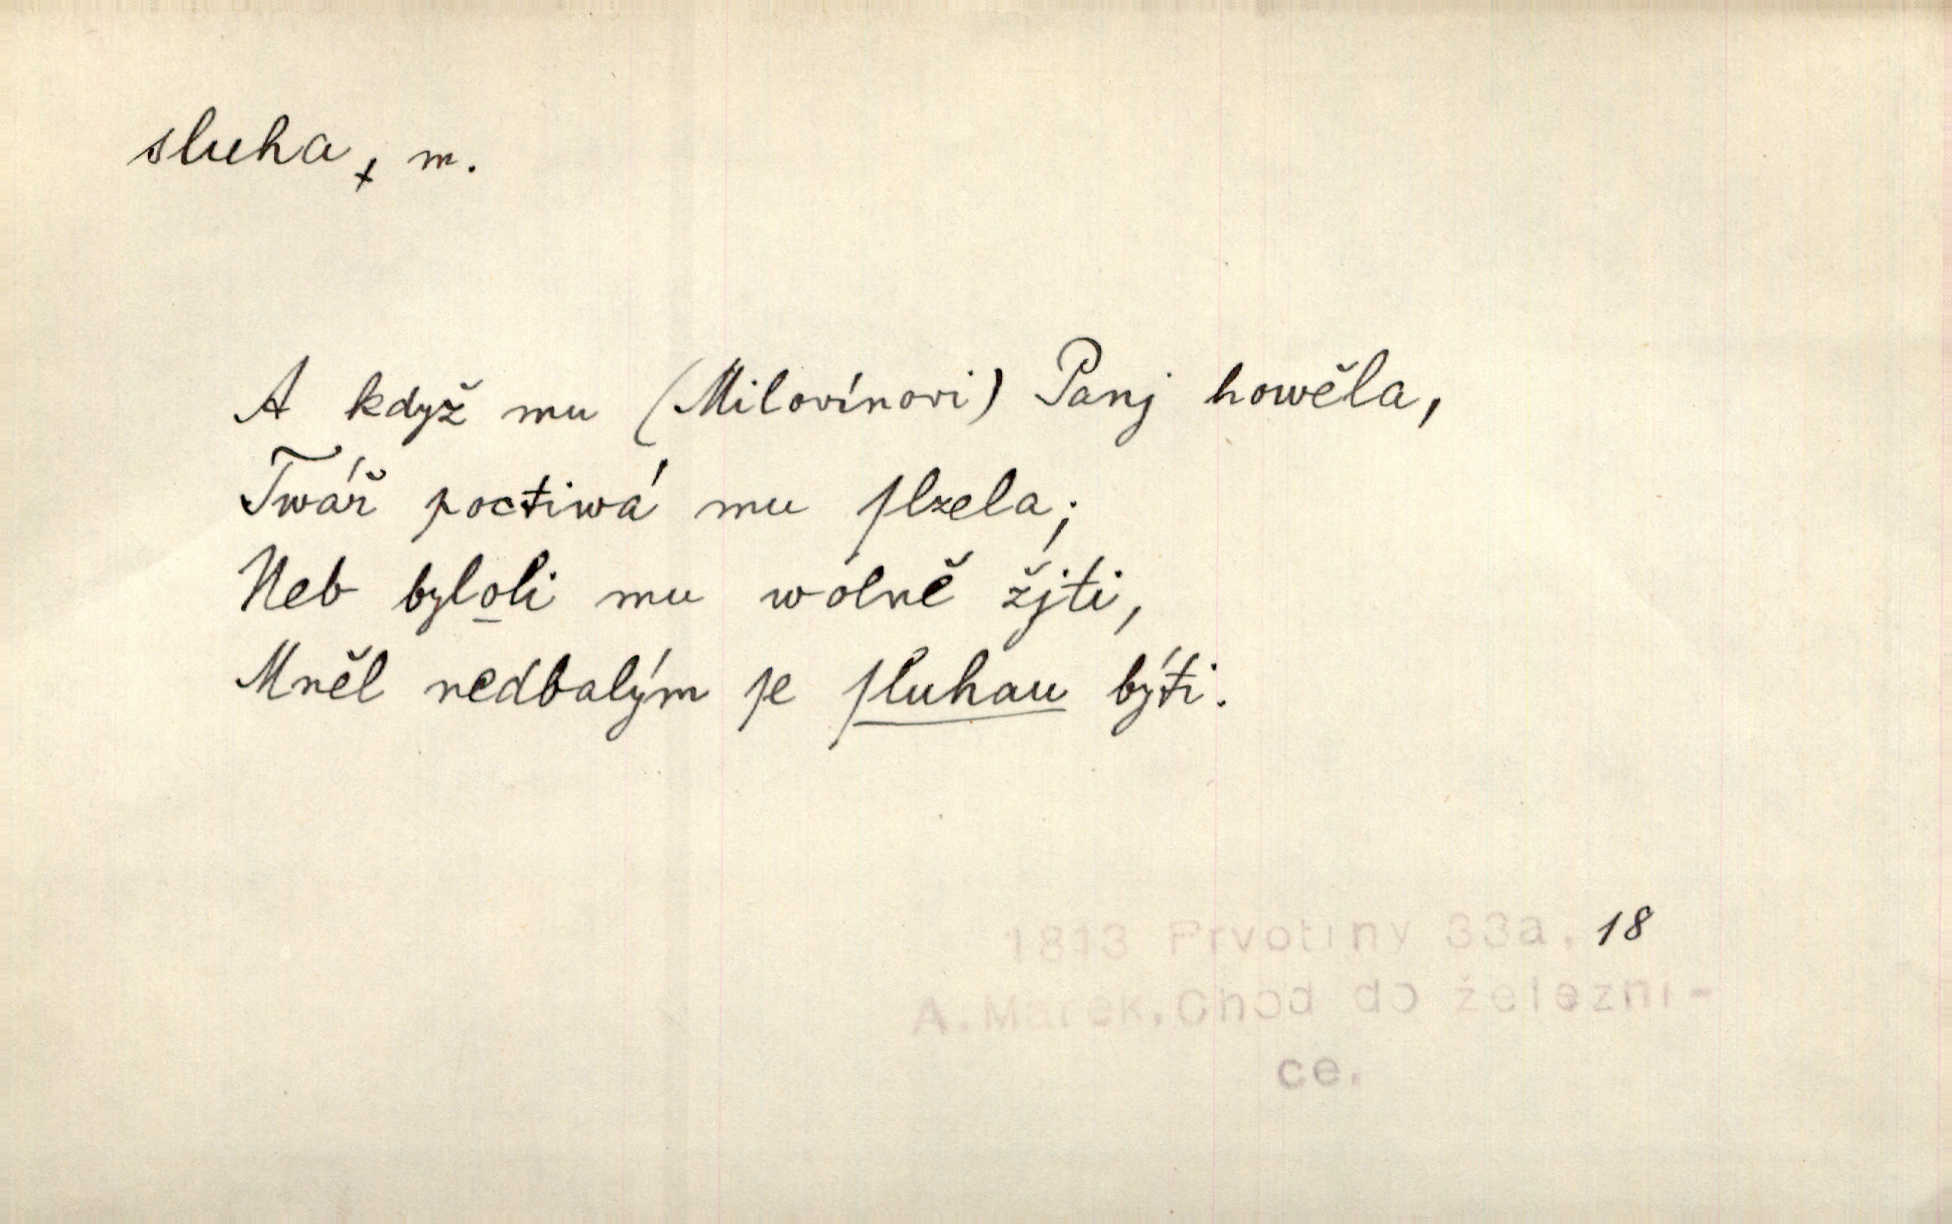 sluha, m.
A když mu (Milovínovi) Panj howěla,
Twář poctiwá mu ſlzela;
Neb byloli mu wolně žjti,
Mněl nedbalým ſe ſluhau býti.
1813 Prvotiny 33a, 18
A.Marek,Chod do železni-
ce.